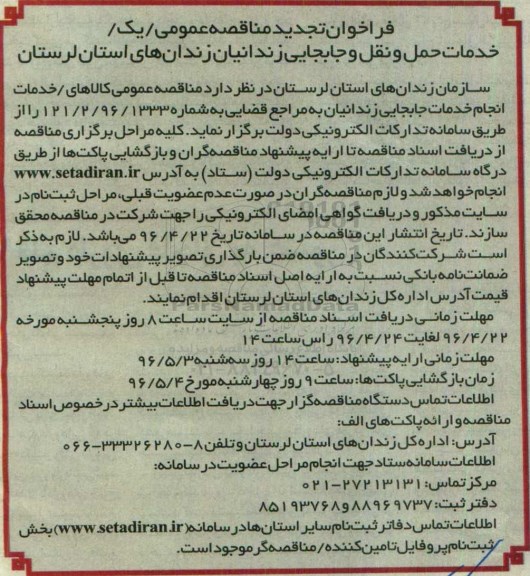 فراخوان تجدید مناقصه عمومی/یک/
خدمات حمل و نقل و جابجایی زندانیان زندان های استان لرستان
سازمان زندان های استان لرستان در نظر دارد مناقصه عمومی کالاهای/خدمات
انجام خدمات جابجایی زندانیان به مراجع قضایی به شماره ۱۲۱/۲/۹۶/۱۳۳۳ را از
طریق سامانه تدارکات الکترونیکی دولت برگزار نماید. کلیه مراحل برگزاری مناقصه
از دریافت اسناد مناقصه تا ارایه پیشنهاد مناقصه گران و بازگشایی پاکت ها از طریق
درگاه سامانه تدارکات الکترونیکی دولت (ستاد) به آدرس www.setadiran.ir
انجام خواهد شد و لازم مناقصه گران در صورت عدم عضویت قبلی، مراحل ثبت نام در
سایت مذکور و دریافت گواهی امضای الکترونیکی را جهت شرکت در مناقصه محقق
سازند. تاریخ انتشار این مناقصه در سامانه تاریخ ۹۶/۴/۲۲ می باشد. لازم به ذکر
است شرکت کنندگان در مناقصه ضمن بارگذاری تصویر پیشنهادات خود و تصویر
ضمانت نامه بانکی نسبت به ارایه اصل اسناد مناقصه تا قبل از اتمام مهلت پیشنهاد
قیمت آدرس اداره کل زندان های استان لرستان اقدام نمایند.
مهلت زمانی دریافت اسناد مناقصه از سایت ساعت ۸ روز پنجشنبه مورخه
۹۶/۴/۲۲ لغایت ۹۶/۴/۲۴ راس ساعت ۱۴
مهلت زمانی ارایه پیشنهاد: ساعت ۱۴ روز سه شنبه ۹۶/۵/۳
زمان بازگشایی پاکت ها: ساعت ۹ روز چهارشنبه مورخ ۹۶/۵/۴
اطلاعات تماس دستگاه مناقصه گزار جهت دریافت اطلاعات بیشتر در خصوص اسناد
مناقصه و ارائه پاکت های الف:
آدرس: اداره کل زندان های استان لرستان و تلفن ۸-۳۳۳۲۶۲۸۰-۰۶۶
اطلاعات سامانه ستاد جهت انجام مراحل عضویت در سامانه:
مرکز تماس: ۲۷۲۱۳۱۳۱-۰۲۱
دفتر ثبت: ۸۸۹۶۹۷۳۷ و ۸۵۱۹۳۷۶۸
اطلاعات تماس دفاتر ثبت نام سایر استان ها در سامانه (www.setadiran.ir) بخش
ثبت نام پروفایل تامین کننده/مناقصه گر موجود است.